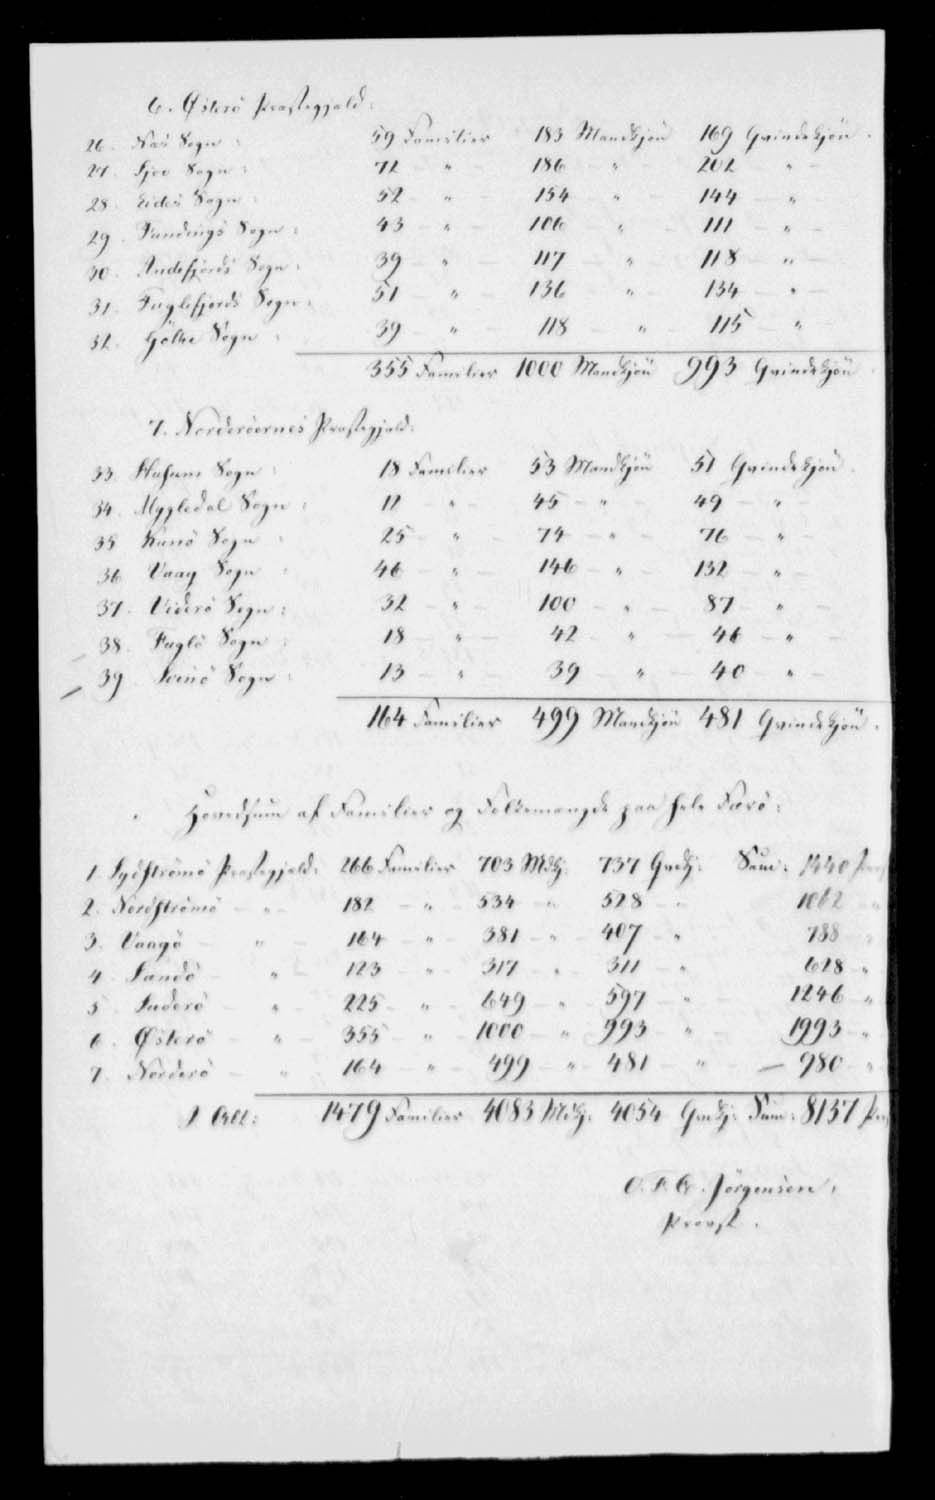 6. Österö Præstegjæld:
26. Næs Sogn: 59 Familier 183 Mandkjön 169 Qvindekjön.
27. Sjov Sogn: 72 - " - 186 - " - 202 - " -
28. Eides Sogn: 52 - " - 154 - " - 144 - " -
29. Fundings Sogn: 43 - " - 106 - " - 111 - " -
30. Andefjords Sogn: 39 - " - 117 - " - 118 - " -
31. Fuglefjords Sogn: 51 - " - 136 - " - 134 - " -
32. Göthe Sogn: 39 - " - 118 - " - 115 - " -
355 Familier 1000 Mandkjön 993 Qvindekjön.
7. Norderöernes Præstegjæld:
33. Husum Sogn: 18 Familier 53 Mandkjön 51 Qvindekjön.
34. Mygledal Sogn: 12 - " - 45 - " - 49 - " -
35. Kunö Sogn: 25 - " - 74 - " - 76 - " -
36. Vaag Sogn: 46 - " - 146 - " - 132 - " -
37. Viderö Sogn: 32 - " - 100 - " - 87 - " -
38. Fuglö Sogn: 18 - " - 42 - " - 46 - " -
39. Svinö Sogn: 13 - " - 39 - " - 40 - " -
164 Familier 499 Mandkjön 481 Qvindekjön.
Hovedsum af Familier og Folkemængde paa hele Færö:
1. Sydströmö Præstegjæld: 266 Familier 703 Mdkj: 737 Qvdkj: Sum: 1440
2. Nordströmö - " - 182 - " - 534 - " - 528 - " 1062 "
3. Vaagö - " - 164 - " - 381 - " - 407 - " 788 "
4. Sandö - " 123 - " - 317 - " - 311 - " 628 "
5. Suderö - " - 225 - " - 649 - " - 597 - " - 1246 - "
6. Österö - " - 355 - " - 1000 - " - 993 - " 1993 - "
7. Norderö - " 164 - " - 499 - " - 481 - " - 980 - "
I Alt: 1479 Familier 4083 Mdkj: 4054 Qvdkj: Sum: 8137
C. F. C. Jörgensen,
Provst.